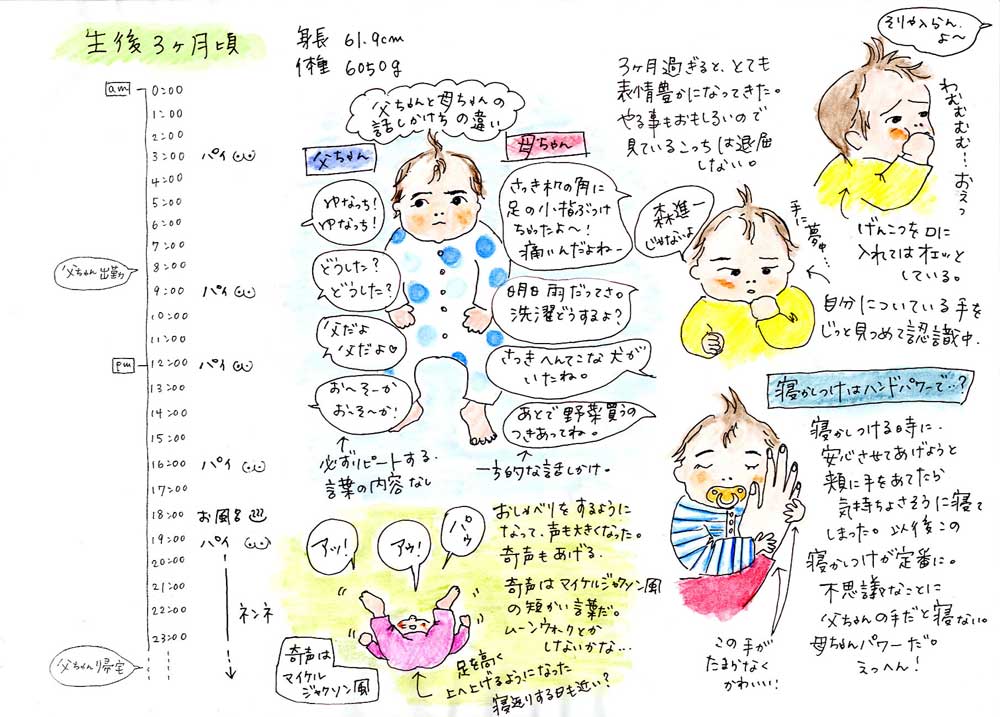 生後3ヶ月頃
身長 61.9cm
体重 6050g
am
0:00
1:00
2:00
3:00 パイ
4:00
5:00
6:00
7:00
8:00
父ちゃん出勤
9:00 パイ
10:00
11:00
pm
12:00 パイ
13:00
14:00
15:00
16:00 パイ
17:00
18:00 お風呂
19:00 パイ
20:00
21:00
22:00
ネンネ
23:00
父ちゃん帰宅
父ちゃんと母ちゃんの
話しかけちの違い
父ちゃん
ゆなっち!
ゆなっち!
どうした?
どうした?
父だよ
父だよ♡
お〜そーか
お〜そ〜か!
必ずリピートする。
言葉の内容なし
母ちゃん
さっき机の角に
足の小指ぶつけ
ちゃったよ〜!
痛いんだよねー
明日雨だってさ。
洗濯どうするよ?
さっきへんてこな犬が
いたね。
あとで野菜買うの
つきあってね。
一方的な話しかけ。
3ヶ月過ぎると、とても
表情豊かになってきた。
やる事もおもしろいので
見ているこっちは退屈
しない。
そりゃ入らん
よ〜
わむむむ…おえっ
げんこつを口に
入れてはオエッと
している。
森進一
じゃないよ
手に夢中…
自分についている手を
じっと見つめて認識中.
寝かしつけはハンドパワーで…?
寝かしつける時に、
安心させてあげようと
頬に手をあてたら
気持ちよさそうに寝て
しまった。以後この
寝かしつけが定番に。
不思議なことに
父ちゃんの手だと寝ない。
母ちゃんパワーだ。
えっへん!
この手が
たまらなく
かわいい!
おしゃべりをするように
なって、声も大きくなった。
奇声もあげる.
奇声はマイケルジャクソン風
の短かい言葉だ。
ムーンウォークとか
しないかな…
アッ!
アゥ!
パゥ
奇声は
マイケル
ジャクソン風
足を高く
上へ上げるようになった
寝返りする日も近い?